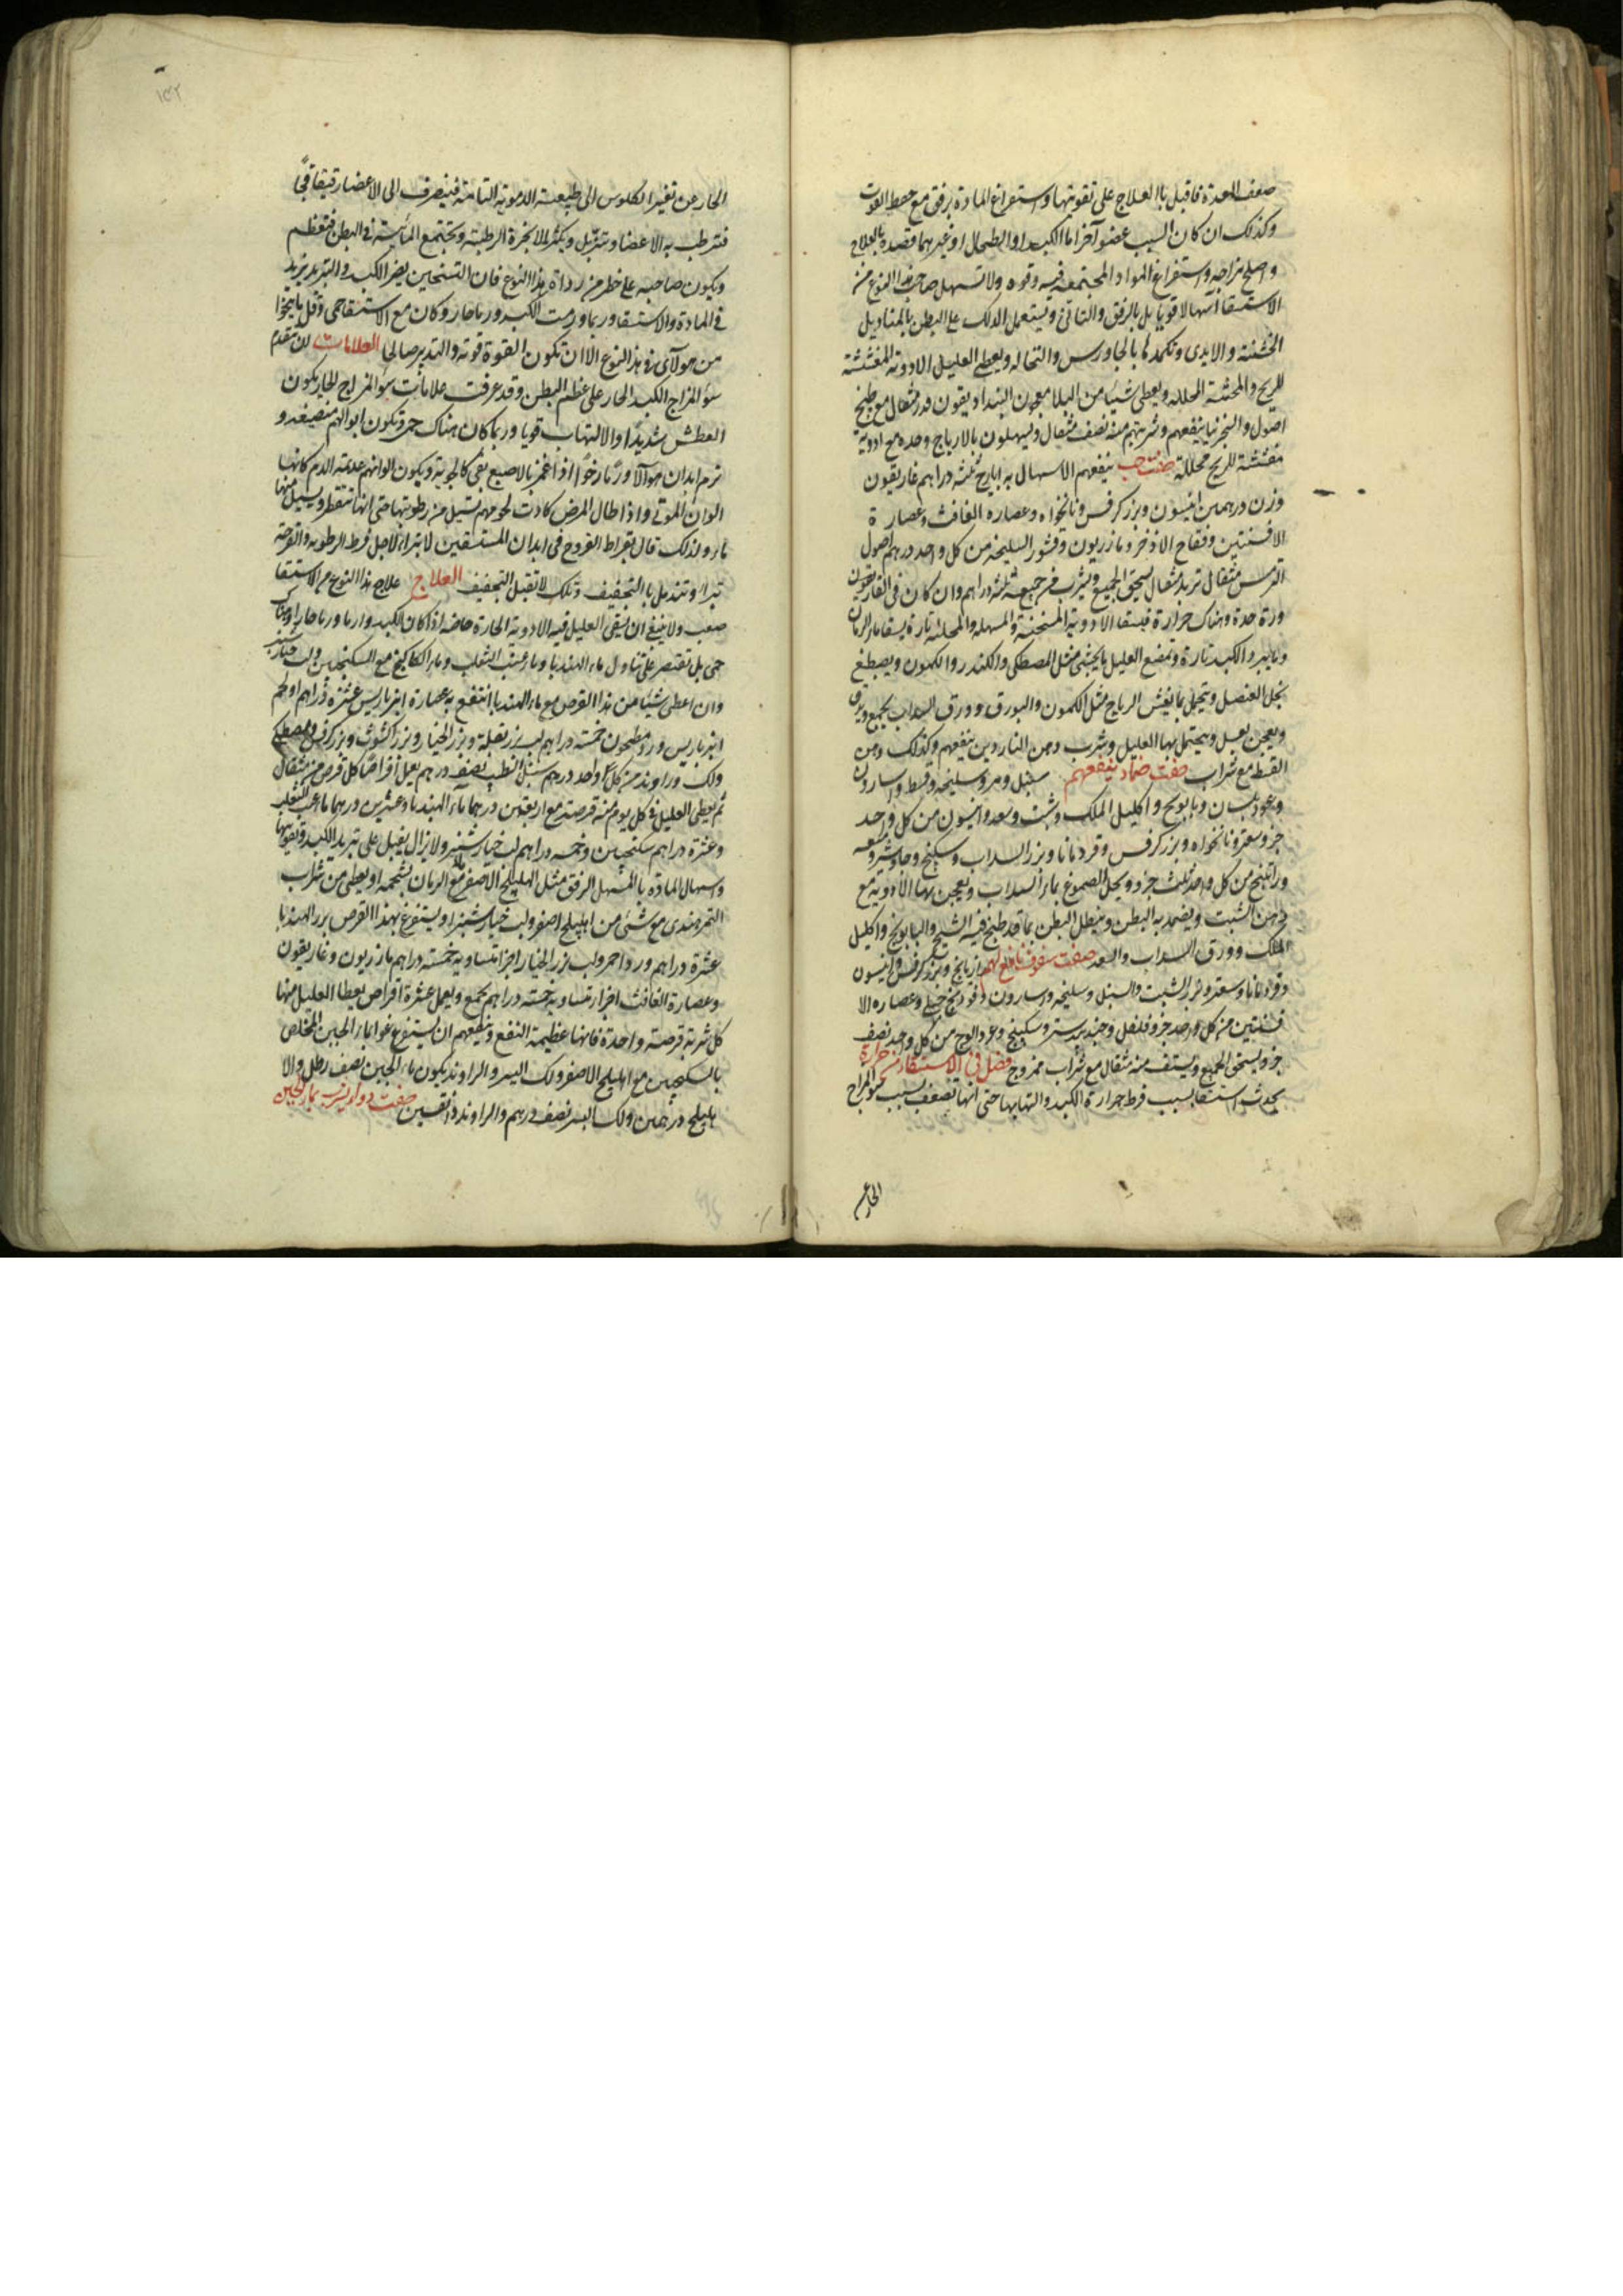 ضعف المعدة فاقبل بالعلاج على تقويتها واستفراغ المادة برفق مع حفظ القوت
وكذلك ان كان السبب عضو آخر اما الكبد او الطحال او غيرهما فقصده بالعلاج
واصلح مزاجه واستفراغ المواد المجتمعة فيه وقوه ولا تسهل صاحب هذا النوع من
الاستسقا اسهالا قويا بل بالرفق والتانى ويستعمل الدلك على البطن بالمناديل
الخشنة والايدى وتكمدها بالجاورس والنخاله ويعطى العليل الادوية المفششة
للريح والمحللة ويعطى شيئا من معجون قدر مثقال مع طبيخ
اصول ينفعهم وشربتهم منه نصف مثقال ويسهلون بالايارج وحده مع ادوية
مفششة للريح محللة صفت حب ينفعهم الاسهال به ايارج ثلثه دراهم غاريقون
وزن درهمين انيسون وبزر كرفس ونانخواه وعصاره الغافث وعصارة
الافسنتين وفقاح الاذخر ومازريون وقشور السليخه من كل واحد درهم اصول
مثقال تربد مثقال يسحق الجميع ويشرب من جميعه ثلثه دراهم وان كان فى القارورة
حدة وهناك حرارة فيسقا الادوية المسخنة والمسهله والمحلله تارة يسقا ماء الرمان
وما يبرد الكبد تارة ويمضغ العليل ما يجشى مثل المصطكى والكندر والكمون ويصطبغ
بخل العنصل ويتحمل بما يفش الرياح مثل الكمون والبورق وورق السداب يجمع ويدق
ويعجن بعسل ويتحمل بها العليل وشرب دهن الناردين ينفعهم وكذلك دهن
القسط مع شراب صفت ضماد ينفعهم سنبل ومر وسليخه وقسط واسارون
وعود بلسان وبابونج واكليل الملك وشبت وسعد وانيسون من كل واحد
جزو سعتر ونانخواه وبزر كرفس وقردمانا وبزر السداب وسكبينج وجاوشير
وراتينج من كل واحد ثلث جزو ويحل الصموغ بماء السداب ويعجن بها الادوية مع
دهن الشبت ويضمد به البطن وينطل البطن بما قد طبخ فيه الشيح والبابونج واكليل
الملك وورق السداب والسعد صفت سفوف نافع لهم رازيانج وبزر كرفس وانيسون
وقردمانا وسعد وبزر الشبت والسنبل وسليخه واسارون وفودنج جبلى وعصاره الا
فسنتين من كل واحد جزو فلفل وجندبيدستر وسكبينج وعود الوج من كل واحد نصف
جزو يسحق الجميع ويستف منه مثقال مع شراب ممزوج فصل فى الاستسقاء من حرارة
يحدث استسقا بسبب فرط حرارة الكبد والتهابها حتى انها تضعف بسبب سو المزاج
الحار عن
الحار عن تغير الكيلوس الى طبيعة الدموية التامة فينصرف الى الاعضا رقيقا فجا
فترطب به الاعضا وتترهل ويكثر الابخرة الرطبة وتجتمع المائية فى البطن فتعظم
ويكون صاحبه على خطر من رداة هذا النوع فان التسخين يضر الكبد والتبريد يزيد
فى المادة والاستسقا وربما ورمت الكبد ورما حارا وكان مع الاستسقا حمى وقل ما ينجوا
من هولآى من هذا النوع الا ان تكون القوة قوية والتدبير صالحا العلامات تقدم
سو المزاج الكبد الحار على عظم البطن وقد عرفت علامات سو المزاج الحار يكون
العطش شديدا والالتهاب قويا وربما كان هناك حمى وتكون ابوالهم منصبغه و
ترم ابدان هولآ ورما رخوا اذا غمز بالاصبع بقى كالجوبة ويكون الوانهم عديمة الدم كانها
الوان الموتى واذا طال المرض كادت لحومهم تسيل من رطوبتها حتى انها تتقطر ويسيل منها
ماء ولذلك قال بقراط القروح فى ابدان المستسقين لا تبرا لاجل فرط الرطوبه والقرحة
تبرا وتندمل بالتجفيف وتلك لا تقبل التجفيف العلاج علاج هذا النوع من الاستسقا
صعب ولا ينبغى ان يسقى العليل فيه الادوية الحارة خاصه اذا كان الكبد وارما ورما حارا وهناك
حمى بل تقتصر على تناول ماء الهندبا وماء عنب الثعلب وماء الكاكنج مع السكنجبين ولب خيارشنبر
وان اعطى شيئا من هذا القرص مع ماء الهندبا انتفع به عصارة انبرباريس عشرة دراهم او لحم
انبرباريس ورد مطحون خمسة دراهم لب بزر بقلة وبزر الخيار وبزر الكشوث وبزر كرفس ومصطكى
ولك وراوند من كل واحد درهم سنبل الطيب نصف درهم يعمل اقراصا كل قرص من مثقال
ثم يعطى العليل فى كل يوم منه قرصة مع اربعين درهما ماء الهندبا وعشرين درهما ماء عنب الثعلب
وعشرة دراهم سكنجبين وخمسه دراهم لب خيارشنبر ولا يزال يقبل على تبريد الكبد وتقويتها
واسهال المادة بالمسهل الرفق مثل الهليلج الاصفر مع ماء الرمان بشحمه او يعطى من شراب
التمر هندى مع شئ من اهليلج اصفر ولب خيارشنبر او يستفرغ بهذا القرص بزر الهندبا
عشرة دراهم ورد احمر ولب بزر الخيار اجزا متساويه خمسة دراهم مازريون وغاريقون
وعصارة الغافث اجزا متساويه خمسة دراهم يجمع ويعمل عشرة اقراص يعطا العليل منها
كل شربة قرصة واحدة فانها عظيمة النفع وينفعهم ان يستفرغوا بماء الجبن المخلص
بالسكنجبين مع اهليلج الاصفر ولك اليسر والراوند يكون ماء الجبن نصف رطل والا
هليلج درهمين ولك اليسر نصف درهم والراوند دانقين صفت دواء يشرب بماء الجبن